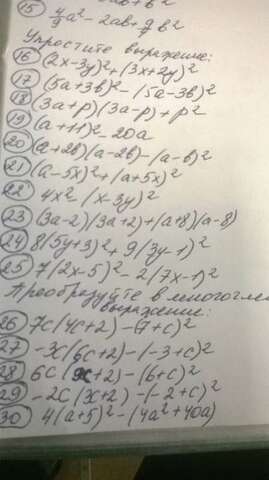 15) 4/9a² - 2ab + 9/4b²
Упростите выражение:
16 (2x-3y)²+(3x+2y)²
17 (5a+3b)²-(5a-3b)²
18 (3a+p)(3a-p)+p²
19 (a+11)²-20a
20 (a+2b)(a-2b)-(a-b)²
21 (a-5x)²+(a+5x)²
22 4x²-(x-3y)²
23 (3a-2)(3a+2)+(a+8)(a-8)
24 8(5y+3)²+9(3y-1)²
25 7(2x-5)²-2(7x-1)²
Преобразуйте в многочлен
выражение:
26 7c(4c+2)-(7+c)²
27 -3c(6c+2)-(-3+c)²
28 6c(9c+2)-(6+c)²
29 -2c(3c+2)-(-2+c)²
30 4(a+5)²-(4a²+40a)